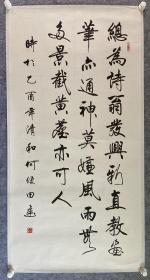 總為詩翁發興新直教畫
筆亦通神莫嫌風雨無
多景截黃蘆亦可人
時於乙酉年清和何俊田